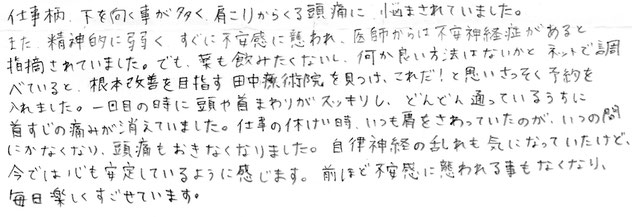 仕事柄、下を向く事が多く、肩こりからくる頭痛に、悩まされていました。
また、精神的に弱く、すぐに不安感に襲われ、医師からは不安神経症があると
指摘されていました。でも、薬も飲みたくないし、何か良い方法はないかとネットで調
べていると、根本改善を目指す田中療術院を見つけ、これだ！と思いさっそく予約を
入れました。一回目の時に頭や首まわりがスッキリし、どんどん通っているうちに
首すじの痛みが消えていました。仕事の休けい時、いつも肩をさわっていたのが、いつの間
にかなくなり、頭痛もおきなくなりました。自律神経の乱れも気になっていたけど、
今では心も安定しているように感じます。前ほど不安感に襲われる事もなくなり、
毎日楽しくすごせています。